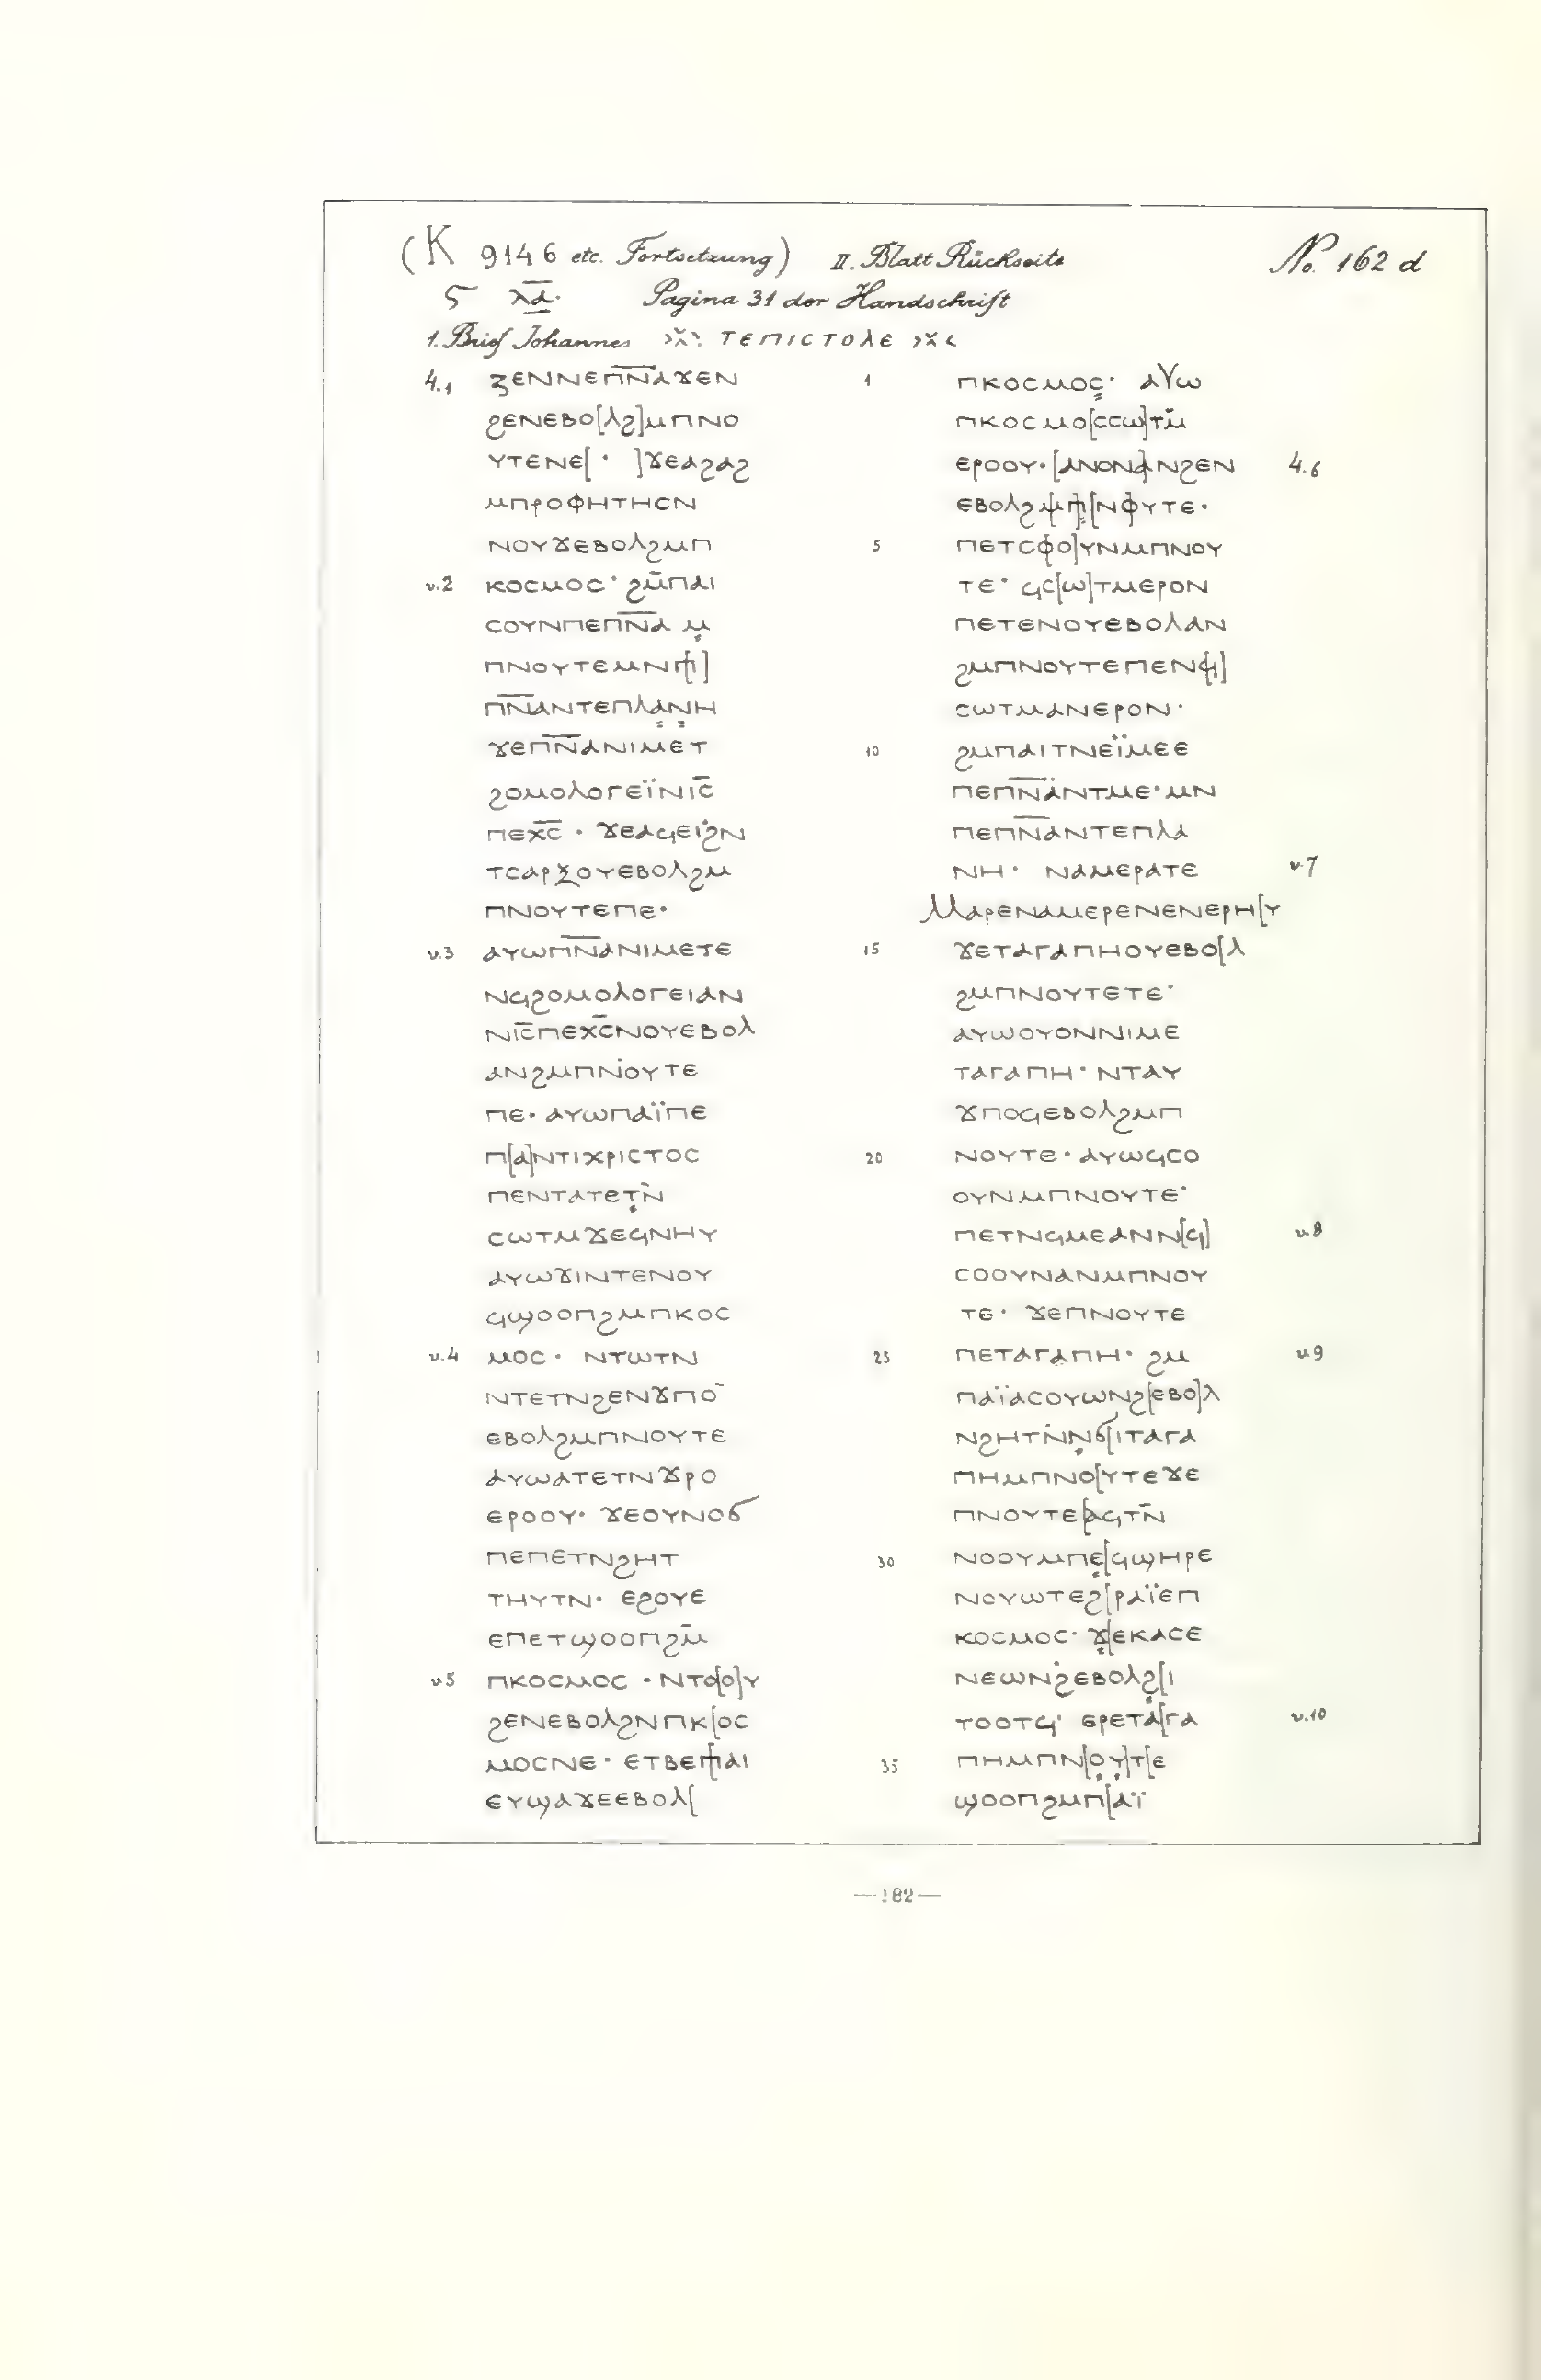 (K 9146 etc. Fortsetzung) II. Blatt Rückseite No. 162 d
ⲗ̅ⲁ̅· Pagina 31 der Handschrift
1. Brief Johannes ⲧⲉⲡⲓⲥⲧⲟⲗⲉ
4.1 ⲝⲉⲛⲛⲉⲡ̅ⲛ̅ⲁ̅ϫⲉⲛ
ϩⲉⲛⲉⲃⲟ[ⲗϩ]ⲙⲡⲛⲟ
ⲩⲧⲉⲛⲉ[· ]ϫⲉⲁϩⲁϩ
ⲙⲡⲣⲟⲫⲏⲧⲏⲥⲛ
ⲛⲟⲩϫⲉⲃⲟⲗϩⲙⲡ
v.2 ⲕⲟⲥⲙⲟⲥ· ϩⲙ̅ⲡⲁⲓ
ⲥⲟⲩⲛⲡⲉⲡ̅ⲛ̅ⲁ̅ ⲙ̣
ⲡⲛⲟⲩⲧⲉⲙⲛ[ⲡ]
ⲡ̅ⲛ̅ⲁ̅ⲛⲧⲉⲡⲗⲁ̣ⲛ̣ⲏ
ϫⲉⲡ̅ⲛ̅ⲁ̅ⲛⲓⲙⲉⲧ
ϩⲟⲙⲟⲗⲟⲅⲉⲓ̈ⲛⲓ̅ⲥ̅
ⲡⲉⲭ̅ⲥ̅ · ϫⲉⲁϥⲉⲓϩⲛ
ⲧⲥⲁⲣⲝⲟⲩⲉⲃⲟⲗϩⲙ
ⲡⲛⲟⲩⲧⲉⲡⲉ·
v.3 ⲁⲩⲱⲡ̅ⲛ̅ⲁ̅ⲛⲓⲙⲉⲧⲉ
ⲛϥϩⲟⲙⲟⲗⲟⲅⲉⲓⲁⲛ
ⲛⲓ̅ⲥ̅ⲡⲉⲭ̅ⲥ̅ⲛⲟⲩⲉⲃⲟⲗ
ⲁⲛϩⲙⲡⲛⲟⲩⲧⲉ
ⲡⲉ· ⲁⲩⲱⲡⲁⲓ̈ⲡⲉ
ⲡ[ⲁ]ⲛⲧⲓⲭⲣⲓⲥⲧⲟⲥ
ⲡⲉⲛⲧⲁⲧⲉⲧ̣ⲛ̀
ⲥⲱⲧⲙϫⲉϥⲛⲏⲩ
ⲁⲩⲱϫⲓⲛⲧⲉⲛⲟⲩ
ϥϣⲟⲟⲡϩⲙⲡⲕⲟⲥ
v.4 ⲙⲟⲥ· ⲛⲧⲱⲧⲛ
ⲛⲧⲉⲧⲛϩⲉⲛϫⲡⲟ̅
ⲉⲃⲟⲗϩⲙⲡⲛⲟⲩⲧⲉ
ⲁⲩⲱⲁⲧⲉⲧⲛϫⲣⲟ
ⲉⲣⲟⲟⲩ· ϫⲉⲟⲩⲛⲟϭ
ⲡⲉⲡⲉⲧⲛϩⲏⲧ
ⲧⲏⲩⲧⲛ· ⲉϩⲟⲩⲉ
ⲉⲡⲉⲧϣⲟⲟⲡϩⲙ̅
v.5 ⲡⲕⲟⲥⲙⲟⲥ ·ⲛⲧⲟ[ⲟ]ⲩ
ϩⲉⲛⲉⲃⲟⲗϩⲛⲡⲕ[ⲟⲥ
ⲙⲟⲥⲛⲉ· ⲉⲧⲃⲉ[ⲡⲁⲓ
ⲉⲩϣⲁϫⲉⲉⲃⲟⲗ[
1 ⲡⲕⲟⲥⲙⲟⲥ̣· ⲁⲩⲱ
ⲡⲕⲟⲥⲙⲟ[ⲥⲥⲱ]ⲧⲙ̅
ⲉⲣⲟⲟⲩ·[ⲁⲛⲟⲛ]ⲁⲛϩⲉⲛ 4.6
ⲉⲃⲟⲗϩ[ⲙ]ⲡ̣[ⲛⲟ]ⲩⲧⲉ·
5 ⲡⲉⲧⲥ[ⲟⲟ]ⲩⲛⲙⲡⲛⲟⲩ
ⲧⲉ· ϥⲥ[ⲱ]ⲧⲙⲉⲣⲟⲛ
ⲡⲉⲧⲉⲛⲟⲩⲉⲃⲟⲗⲁⲛ
ϩⲙⲡⲛⲟⲩⲧⲉⲡⲉⲛ[ϥ]
ⲥⲱⲧⲙⲁⲛⲉⲣⲟⲛ·
10 ϩⲙⲡⲁⲓⲧⲛⲉⲓ̈ⲙⲉⲉ
ⲡⲉⲡ̅ⲛ̅ⲁ̅ⲛⲧⲙⲉ·ⲙⲛ
ⲡⲉⲡ̅ⲛ̅ⲁ̅ⲛⲧⲉⲡⲗⲁ
ⲛⲏ· ⲛⲁⲙⲉⲣⲁⲧⲉ v.7
ⲙⲁⲣⲉⲛⲁⲙⲉⲣⲉⲛⲉⲛⲉⲣⲏ[ⲩ
15 ϫⲉⲧⲁⲅⲁⲡⲏⲟⲩⲉⲃⲟ[ⲗ
ϩⲙⲡⲛⲟⲩⲧⲉⲧⲉ·
ⲁⲩⲱⲟⲩⲟⲛⲛⲓⲙⲉ
ⲧⲁⲅⲁⲡⲏ· ⲛⲧⲁⲩ
ϫⲡⲟϥⲉⲃⲟⲗϩⲙⲡ
20 ⲛⲟⲩⲧⲉ· ⲁⲩⲱϥⲥⲟ
ⲟⲩⲛⲙⲡⲛⲟⲩⲧⲉ·
ⲡⲉⲧⲛϥⲙⲉⲁⲛⲛ[ϥ] v.8
ⲥⲟⲟⲩⲛⲁⲛⲙⲡⲛⲟⲩ
ⲧⲉ· ϫⲉⲡⲛⲟⲩⲧⲉ
25 ⲡⲉⲧⲁⲅⲁⲡⲏ· ϩⲙ v.9
ⲡⲁⲓ̈ⲁⲥⲟⲩⲱⲛϩ[ⲉⲃⲟ]ⲗ
ⲛϩⲏⲧⲛ̀ⲛ̣ϭ[ⲓⲧⲁⲅⲁ
ⲡⲏⲙⲡⲛⲟ[ⲩⲧⲉϫⲉ
ⲡⲛⲟⲩⲧⲉ[ⲁϥⲧⲛ̅
30 ⲛⲟⲟⲩⲙⲡⲉ̣[ϥϣⲏⲣⲉ
ⲛⲟⲩⲱⲧⲉϩ[ⲣⲁⲓ̈ⲉⲡ
ⲕⲟⲥⲙⲟⲥ· ϫ̣[ⲉⲕⲁⲥⲉ
ⲛⲉⲱⲛϩⲉⲃⲟⲗϩ̣[ⲓ
ⲧⲟⲟⲧϥ· ⲉⲣⲉⲧⲁ[ⲅⲁ v.10
35 ⲡⲏⲙⲡⲛ[ⲟ̣ⲩ̣]ⲧ[ⲉ
ϣⲟⲟⲡϩⲙⲡ[ⲁⲓ̈
—182—